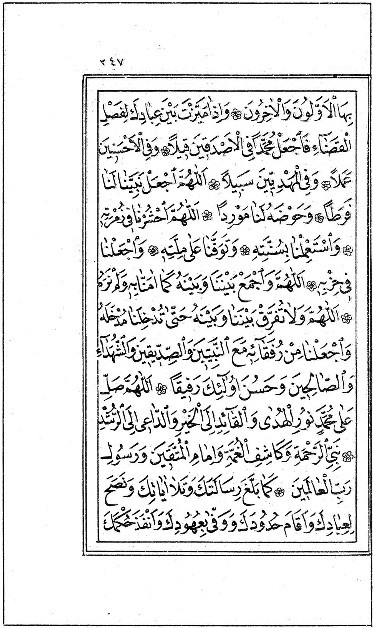 ٣٤٧
بِهَا الْأَوَّلُونَ وَالْآخِرُونَ ۞ وَإِذَا مَيَّزْتَ بَيْنَ عِبَادِكَ لِفَصْلِ
الْقَضَاءِ فَاجْعَلْ مُحَمَّدًا فِي الْأَصْدَقِينَ قِيلًا ۞ وَفِي الْأَحْسَنِينَ
عَمَلًا ۞ وَفِي الْمَهْدِيِّينَ سَبِيلًا ۞ اَللّٰهُمَّ اجْعَلْ نَبِيَّنَا لَنَا
فَرَطًا ۞ وَحَوْضَهُ لَنَا مَوْرِدًا ۞ اَللّٰهُمَّ احْشُرْنَا فِي زُمْرَتِهِ
۞ وَاسْتَعْمِلْنَا بِسُنَّتِهِ ۞ وَتَوَفَّنَا عَلَى مِلَّتِهِ ۞ وَاجْعَلْنَا
فِي حِزْبِهِ ۞ اَللّٰهُمَّ وَاجْمَعْ بَيْنَنَا وَبَيْنَهُ كَمَا اٰمَنَّا بِهِ وَلَمْ نَرَهُ
۞ اَللّٰهُمَّ وَلَا تُفَرِّقْ بَيْنَنَا وَبَيْنَهُ حَتَّى تُدْخِلَنَا مُدْخَلَهُ
وَاجْعَلْنَا مِنْ رُفَقَائِهِ مَعَ النَّبِيِّينَ وَالصِّدِّيقِينَ وَالشُّهَدَاءِ
وَالصَّالِحِينَ وَحَسُنَ اُولٰئِكَ رَفِيقًا ۞ اَللّٰهُمَّ صَلِّ
عَلَى مُحَمَّدٍ نُورِ الْهُدَى وَالْقَائِدِ اِلَى الْخَيْرِ وَالدَّاعِي اِلَى الرُّشْدِ
۞ نَبِيِّ الرَّحْمَةِ وَكَاشِفِ الْغُمَّةِ وَاِمَامِ الْمُتَّقِينَ وَرَسُولِ
رَبِّ الْعَالَمِينَ ۞ كَمَا بَلَّغَ رِسَالَتَكَ وَتَلَا اٰيَاتِكَ وَنَصَحَ
لِعِبَادِكَ وَاَقَامَ حُدُودَكَ وَوَفَّى بِعُهُودِكَ وَاَنْفَذَ حُكْمَكَ